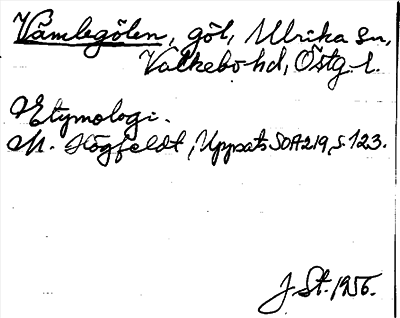 Våmlegölen, göl, Ulrika sn,
Valkebo hd, Östg. l.
Etymologi.
M. Högfeldt, Uppsats SOA 219, s. 123.
J. St. 1956.